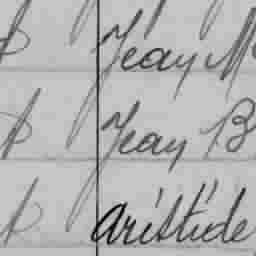 Jean M
Jean B
Aristide